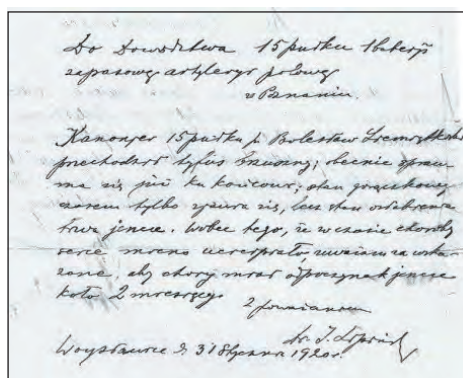 Do Dowództwa 15 pułku 1 baterji
zapasowej artyleryi polowej
w Poznaniu.
Kanonjer 15 pułku p. Bolesław
przechodził tyfus brzuszny; obecnie spraw
ma się już ku końcowi; stan gorączkowy
czasem tylko zjawia się, lecz stan osłabienia
trwa jeszcze. Wobec tego, że w czasie choroby
serce mocno ucierpiało, uważam za wska
zane, aby chory miał odpoczynek jeszcze
koło 2 miesięcy
Z poważaniem
Dr. J.
Woysławice d. 31 Stycznia 1920 r.